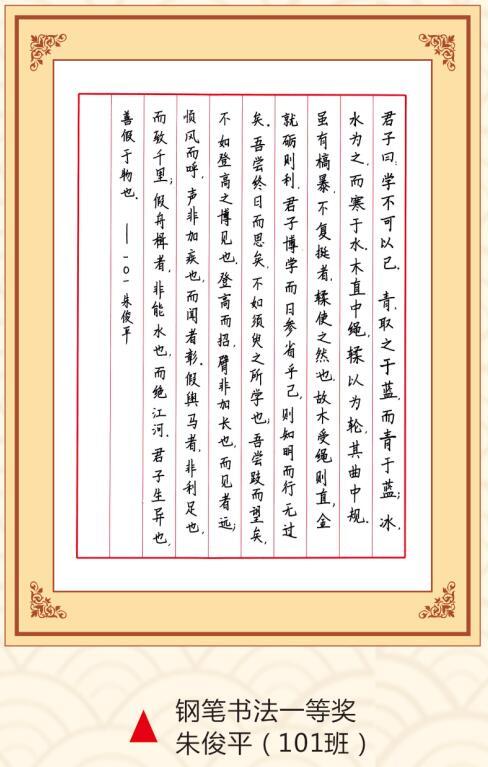 君子曰：学不可以已。青，取之于蓝，而青于蓝；冰，
水为之，而寒于水。木直中绳，輮以为轮，其曲中规。
虽有槁暴，不复挺者，輮使之然也。故木受绳则直，金
就砺则利，君子博学而日参省乎己，则知明而行无过
矣。吾尝终日而思矣，不如须臾之所学也；吾尝跂而望矣，
不如登高之博见也。登高而招，臂非加长也，而见者远；
顺风而呼，声非加疾也，而闻者彰。假舆马者，非利足也，
而致千里；假舟楫者，非能水也，而绝江河。君子生异也，
善假于物也。——一〇一 朱俊平
钢笔书法一等奖
朱俊平（101班）